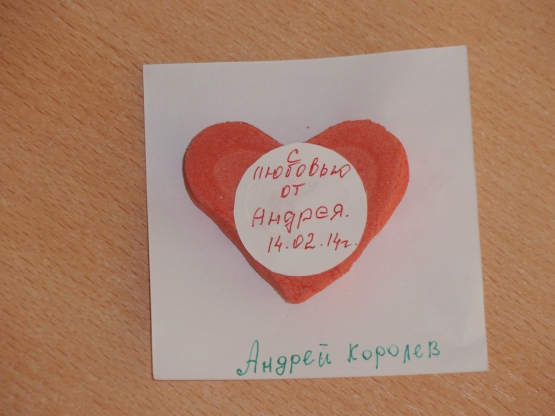 С
любовью
от
Андрея.
14.02.14г.
Андрей Королев